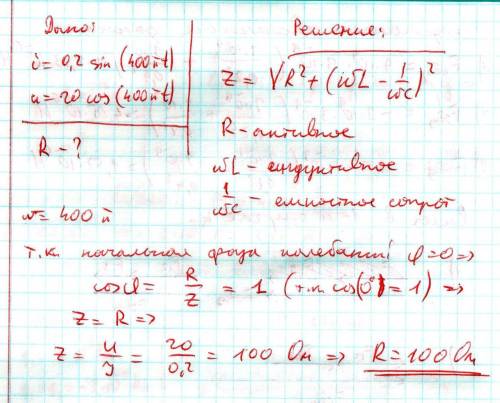 Дано:
i = 0,2 sin (400πt)
u = 20 cos (400πt)
R - ?
ω = 400 π
Решение:
Z = √R² + (ωL - 1/ωC)²
R - активное
ωL - индуктивное
1/ωC - емкостное сопрот
т.к. начальная фаза колебаний φ = 0 =>
cosφ = R/Z = 1 (т.к. cos(0°) = 1) =>
Z = R =>
Z = U/I = 20/0,2 = 100 Ом => R = 100 Ом